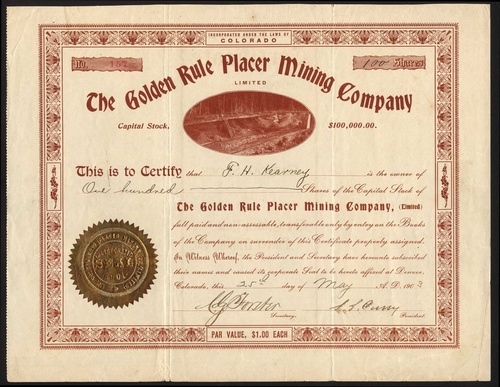 INCORPORATED UNDER THE LAWS OF
COLORADO
No.
100 Shares
The Golden Rule Placer Mining Company
LIMITED
Capital Stock, $100,000.00.
This is to Certify that F. H. Kearney is the owner of
One hundred Shares of the Capital Stock of
The Golden Rule Placer Mining Company, (Limited)
full paid and non-assessable, transferable only by entry on the Books
of the Company on surrender of this Certificate properly assigned.
In Witness Whereof, the President and Secretary have hereunto subscribed
their names and caused its corporate Seal to be hereto affixed at Denver,
Colorado, this 25th day of May A.D. 1903
Secretary. President.
SEAL
PAR VALUE, $1.00 EACH